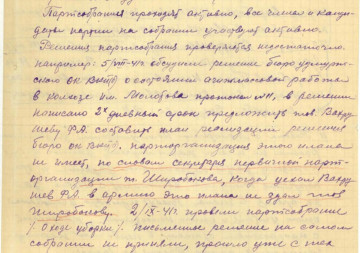 Партсобрания проходят активно, все члены и канди-
даты партии на собрании участвуют активно.
Решения партсобрания проверяются недостаточно.
например: 5/VIII-41г обсудили решение бюро
ск ВКПб о состоянии массовой работы
в колхозе им. Молотова протокол №11, в решении
написано 2х дневный срок предложить тов. Вахру
шеву Ф.А. составить план реализации решения
бюро ск ВКПб, парторганизация этого плана
не имеет, по словам секретаря первичной парт-
организации т. Широбокова, когда уехал Вахру
шев Ф.А. в армию это плана не сдал тов
Широбокову. 2/IX-41г. провели партсобрание
/О ходе уборки/. Письменное решение на самом
собрании не приняли, прошло уже с тех